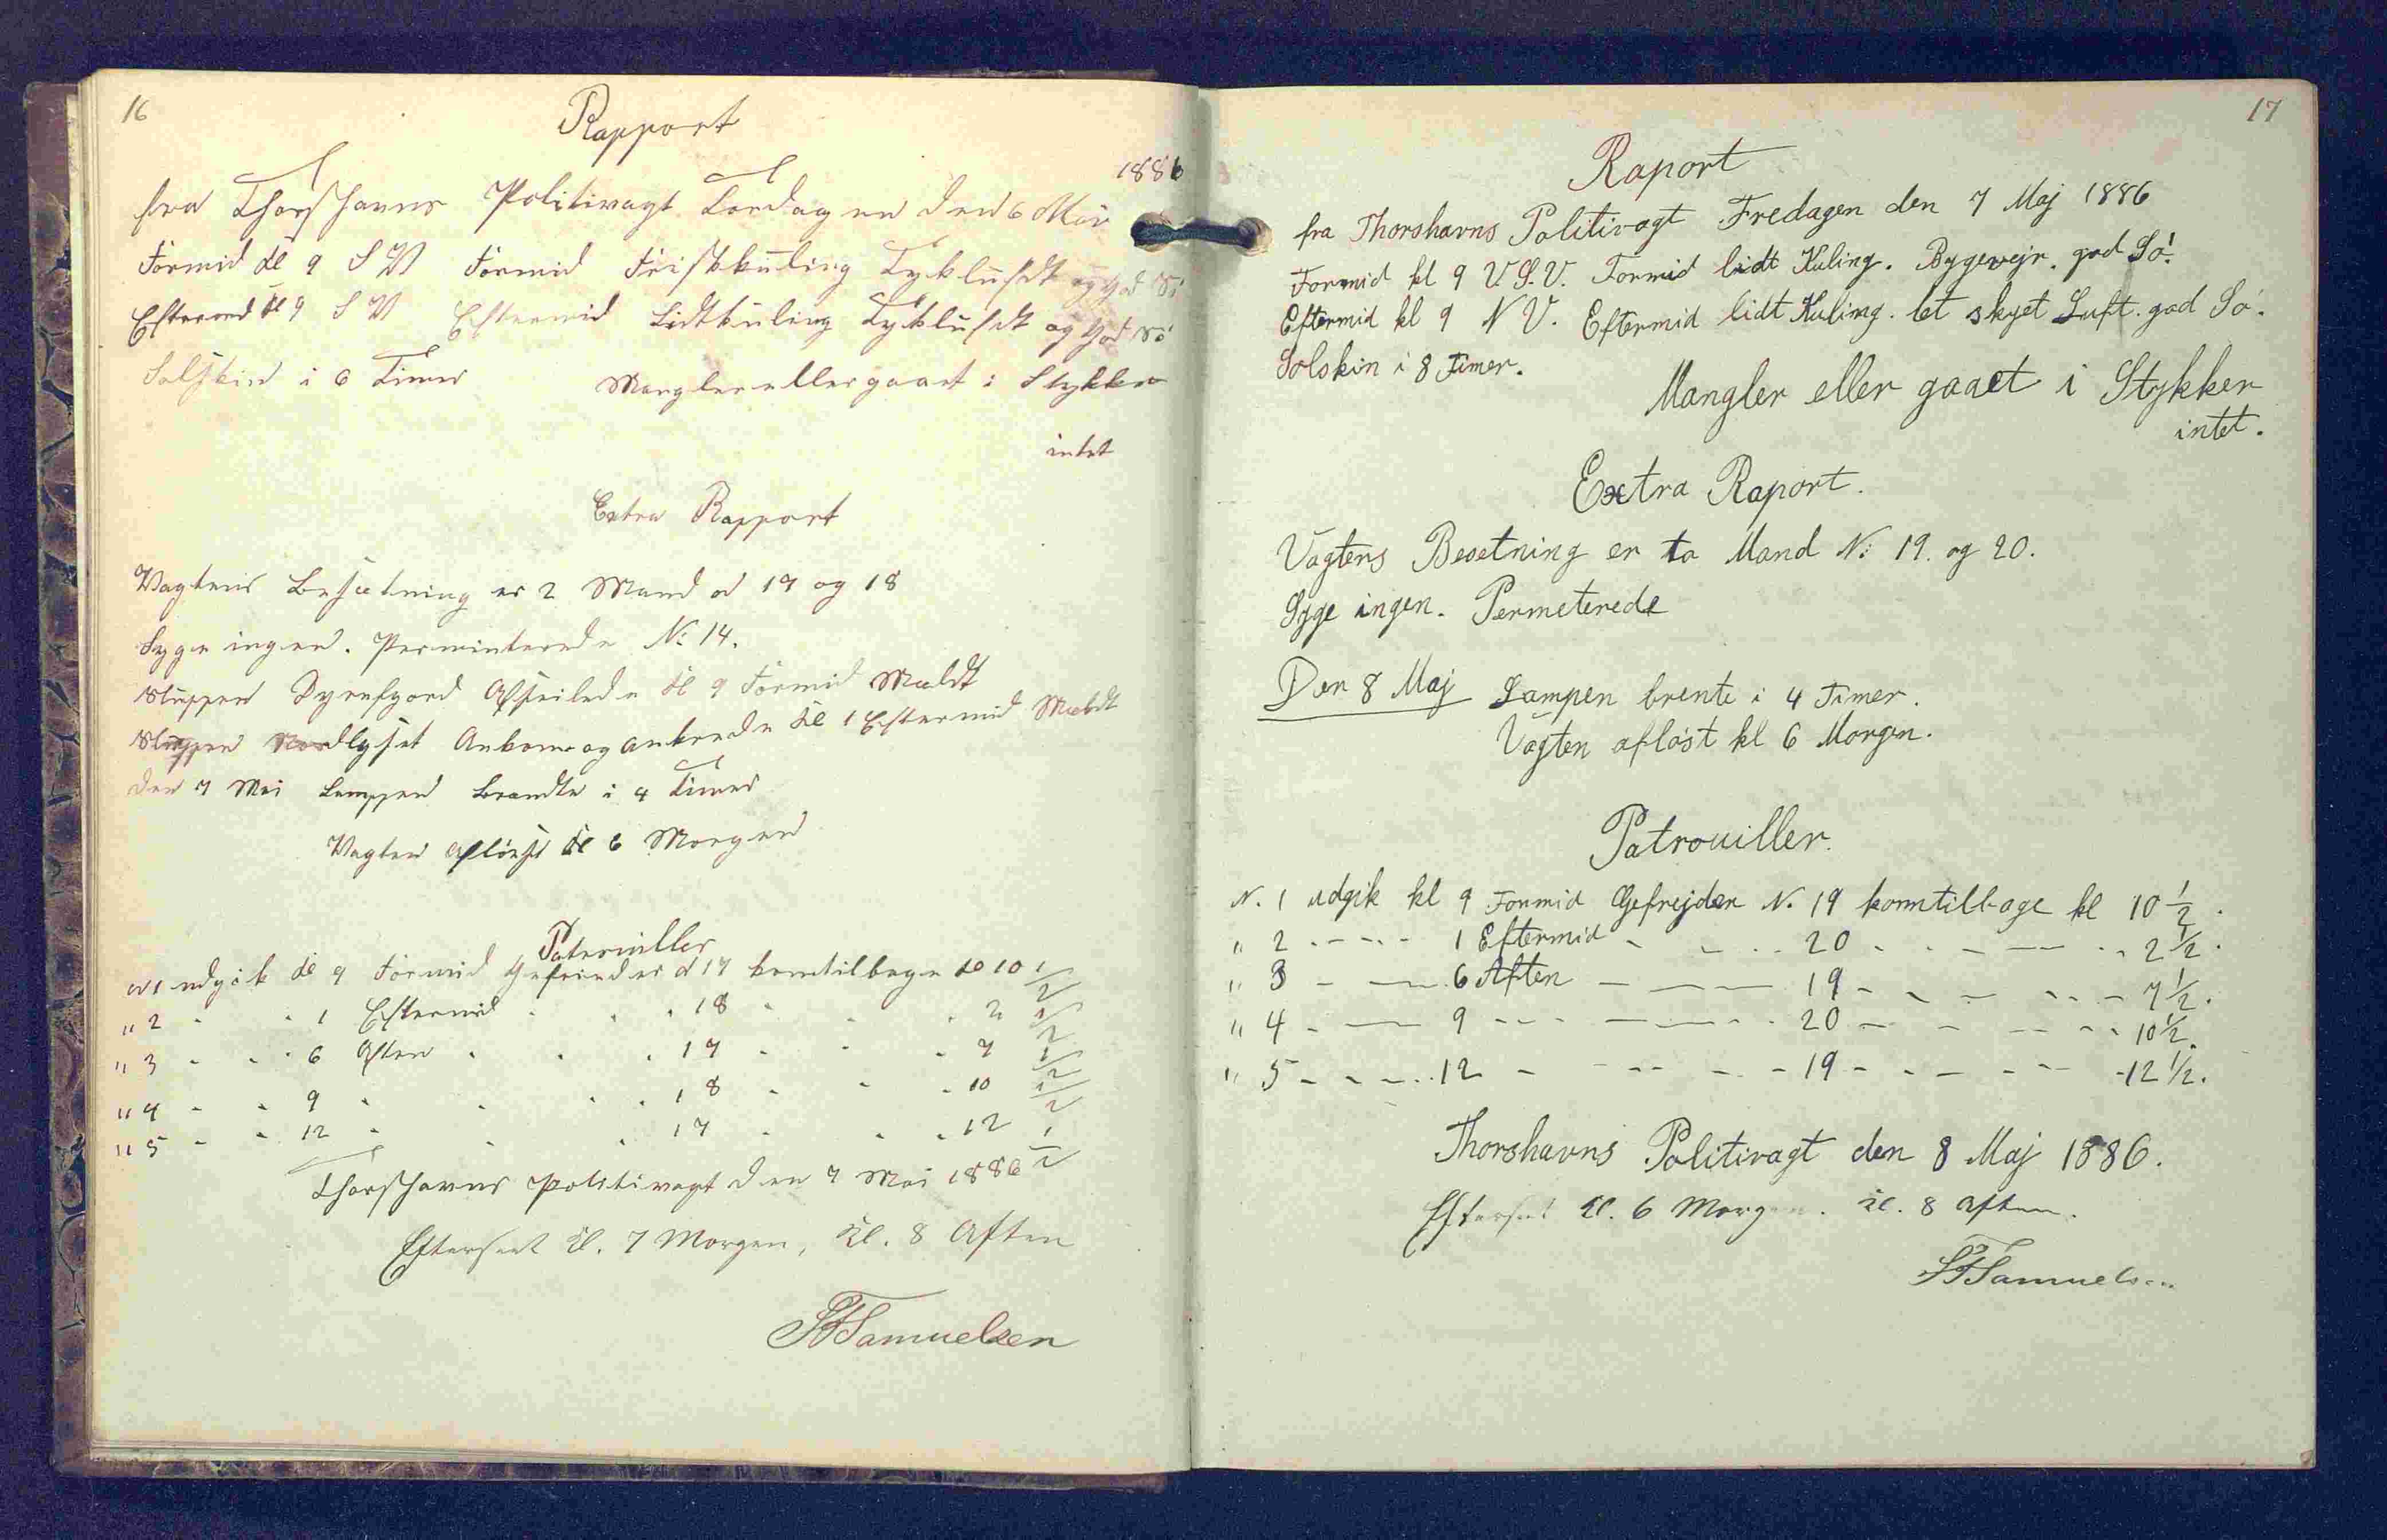 16
Rapport
1886
fra Thorshavns Politivagt Torsdagen den 6 Mai
Formid kl 9 S V Formid Friskkuling Tyklufdt og god Sö
Eftermd kl 9 S V Eftermid Lidtkuling Tyklufdt og god Sö
Solskin i 6 Timer Mangler eller gaaet i Stykker
intet
Extra Rapport
Vagtens Besætning er 2 Mand N 17 og 18
Syge ingen. Perminterede No 14.
Sluppen Dyrefjord Afseilede Kl 9 Formid Mældt
Sluppen Nordlyset Ankom og ankrede Kl 1 Eftermid Mældt
den 7 Mai Lampen Brændte i 4 Timer
Vagten aflöest Kl 6 Morgen
Patrouiller
N 1 udgik kl 9 Formid Gefreider N 17 komtilbage kl 10 1/2
" 2 - - 1 Eftermid - - - 18 - - - 2 1/2
" 3 - - - 6 Aften - - - 17 - - - 7 1/2
" 4 - - 9 - - - - 18 - - - 10 1/2
" 5 - - 12 - - - 17 - - - 12 1/2
Thorshavns Politivagt den 7 Mai 1886
Efterseet Kl. 7 Morgen, Kl. 8 Aften
Samuelsen
17
Raport
fra Thorshavns Politivagt Fredagen den 7 Maj 1886
Formid kl 9 V.S.V. Formid lidt Kuling. Bygevejr. god Sö.
Eftermid kl 9 N V. Eftermid lidt Kuling. let skyet Luft. god Sö.
Solskin i 8 Timer.
Mangler eller gaaet i Stykker
intet.
Extra Raport.
Vagtens Besetning er to Mand No 19. og 20.
Syge ingen. Permeterede
Den 8 Maj Lampen brente i 4 Timer.
Vagten aflöst kl 6 Morgen.
Patrouiller.
N. 1 udgik kl 9 Formid Gefrejder N. 19 komtilbage kl 10 1/2.
" 2 - - - - 1 Eftermid - - - - 20 - - - - - 2 1/2.
" 3 - - 6 Aften - - - 19 - - - - - 7 1/2.
" 4 - - 9 - - - - - 20 - - - - - 10 1/2.
" 5 - - - - 12 - - - - - 19 - - - - - 12 1/2.
Thorshavns Politivagt den 8 Maj 1886.
Efterseet Kl. 6 Morgen. Kl. 8 Aften.
Samuelsen